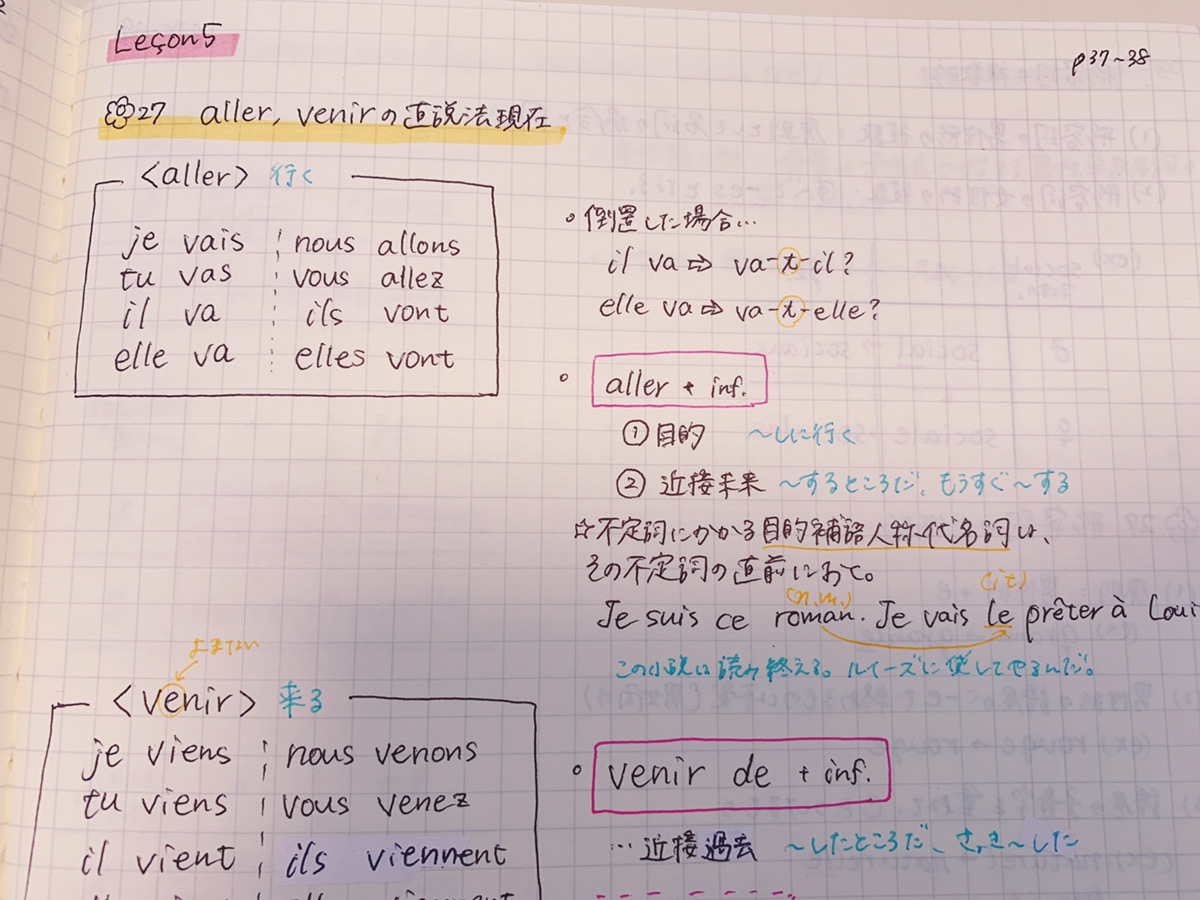 Leçon5
p37~38
27 aller, venirの直説法現在
<aller> 行く
je vais nous allons
tu vas vous allez
il va ils vont
elle va elles vont
倒置した場合…
il va ⇨ va-t-il?
elle va ⇨ va-t-elle?
aller + inf.
① 目的 ~しに行く
② 近接未来 ~するところだ、もうすぐ~する
☆不定詞にかかる目的補語人称代名詞は、
その不定詞の直前におく。
(n.m.) (it)
Je suis ce roman. Je vais le prêter à Loui
この小説は読み終える。ルイーズに貸してやるんだ。
よまない
<venir> 来る
je viens nous venons
tu viens vous venez
il vient ils viennent
venir de + inf.
… 近接過去 ~したところだ、さっき~した